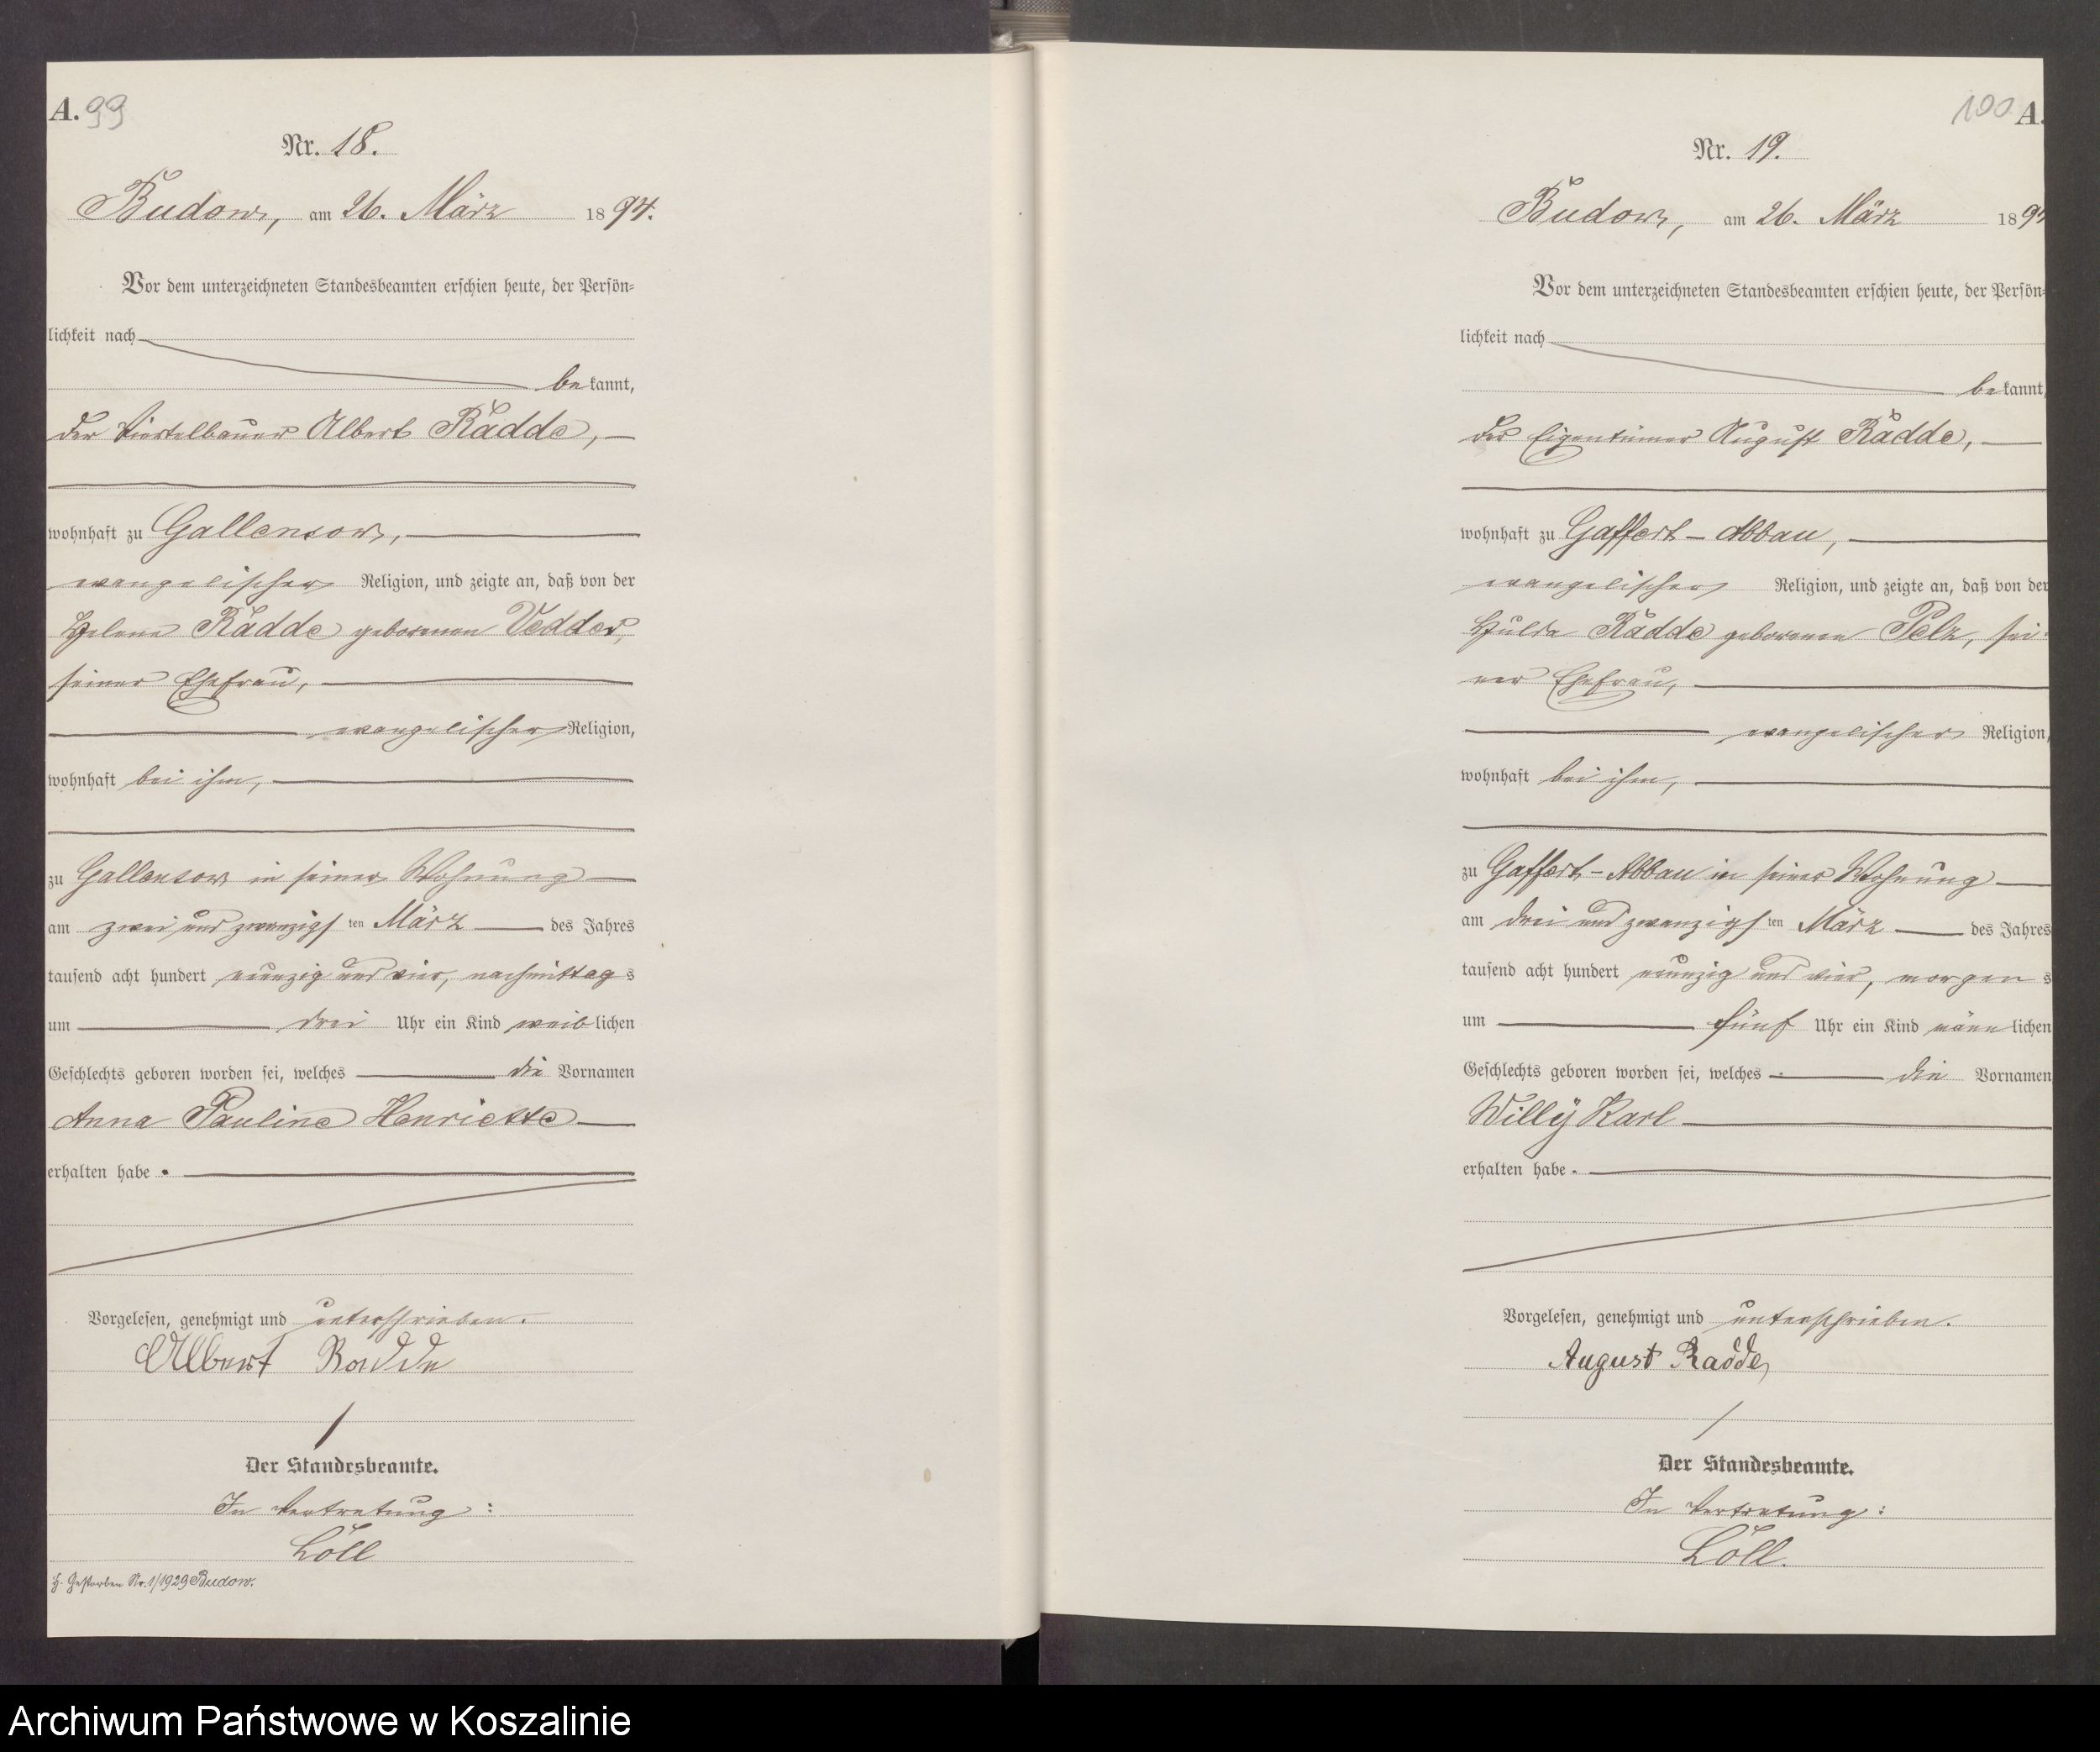 A. 99
Nr. 18.
Budow, am 26. März 1894.
Vor dem unterzeichneten Standesbeamten erschien heute, der Persön-
lichkeit nach
bekannt,
der Viertelbauer Albert Radde,
wohnhaft zu Gallensow,
evangelischer Religion, und zeigte an, daß von der
Helene Radde geborenen Vedder,
seiner Ehefrau,
evangelischer Religion,
wohnhaft bei ihm,
zu Gallensow in seiner Wohnung
am zwei und zwanzigsten März des Jahres
tausend acht hundert neunzig und vier, nachmittags
um drei Uhr ein Kind weiblichen
Geschlechts geboren worden sei, welches die Vornamen
Anna Pauline Henriette
erhalten habe.
Vorgelesen, genehmigt und unterschrieben.
Albert Radde
Der Standesbeamte.
In Vertretung:
Löll
H. Gestorben Nr. 1/1929 Budow.
100 A.
Nr. 19.
Budow, am 26. März 1894
Vor dem unterzeichneten Standesbeamten erschien heute, der Persön-
lichkeit nach
bekannt,
der Eigentümer August Radde,
wohnhaft zu Gaffert-Abbau,
evangelischer Religion, und zeigte an, daß von der
Hulda Radde geborenen Pelz, sei-
ner Ehefrau,
evangelischer Religion,
wohnhaft bei ihm,
zu Gaffert-Abbau in seiner Wohnung
am drei und zwanzigsten März des Jahres
tausend acht hundert neunzig und vier, morgens
um fünf Uhr ein Kind männlichen
Geschlechts geboren worden sei, welches die Vornamen
Willÿ Karl
erhalten habe.
Vorgelesen, genehmigt und unterschrieben.
August Radde,
Der Standesbeamte.
In Vertretung:
Löll.
Archiwum Państwowe w Koszalinie